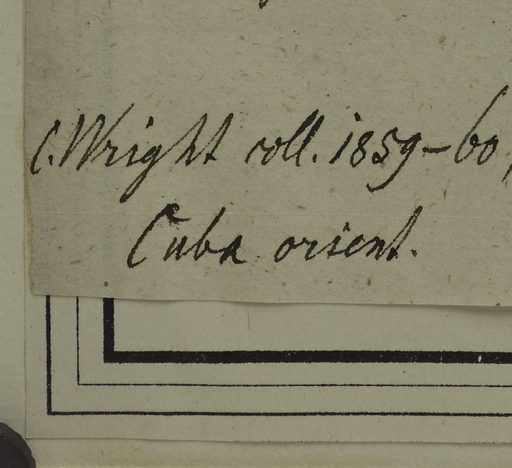 C. Wright coll. 1859-60,
Cuba orient.